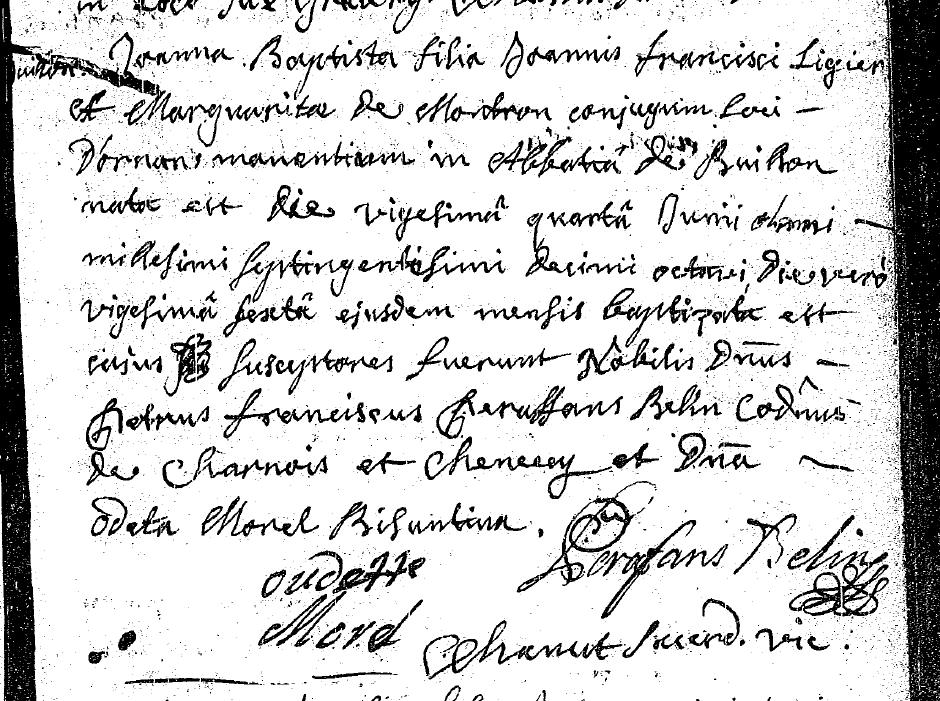 Joanna Baptista filia Joannis francisci Ligier
et Marguaritae de Montron conjugum loci —
Dornans manentium in Abbatiâ de Buillon
nata est die vigesimâ quartâ Junii anni —
millesimi septingentesimi decimi octavi, die vero
vigesimâ sextâ ejusdem mensis baptizata est
cujus susceptores fuerunt Nobilis Dnus —
petrus franciscus Belin Codnus
de Charnois et Chenecey et Dna —
odeta Morel Bisuntina.
oudette Belin
Morel
Chanut Sacerd. vic.